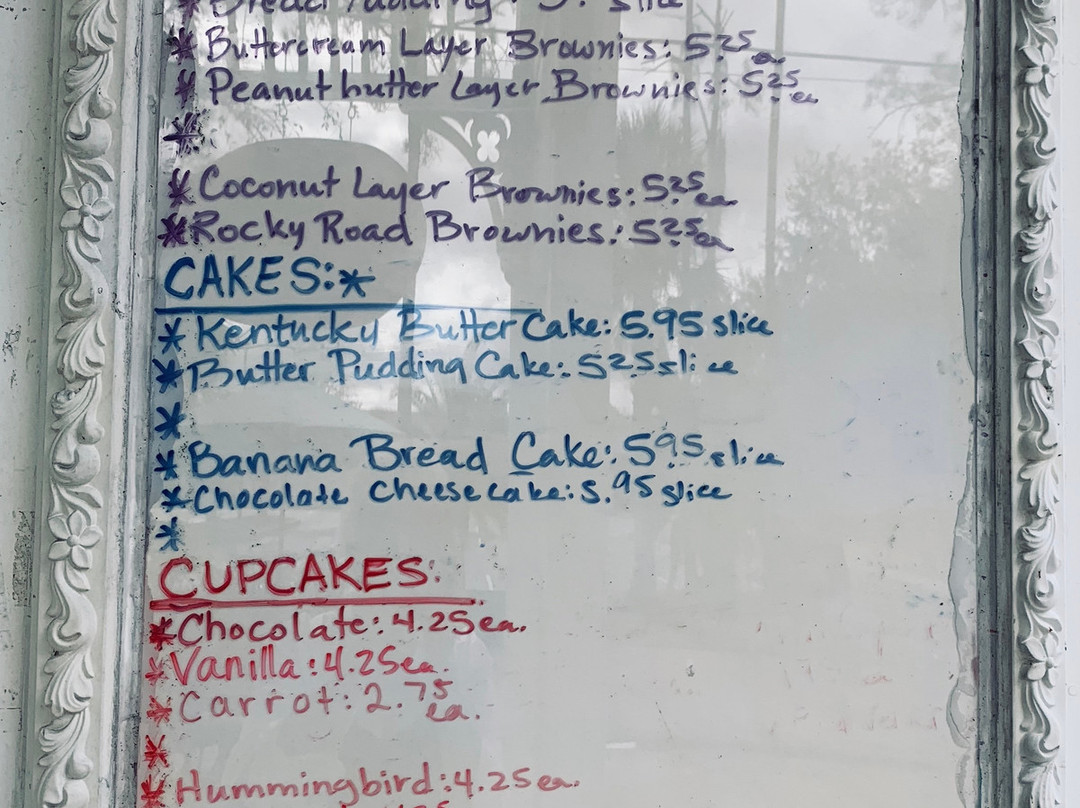 * Bread Pudding: 5. slice
* Buttercream Layer Brownies: 5.25 ea
* Peanut butter Layer Brownies: 5.25 ea
*
* Coconut Layer Brownies: 5.25 ea
* Rocky Road Brownies: 5.25 ea
CAKES:*
* Kentucky Butter Cake: 5.95 slice
* Butter Pudding Cake: 5.25 slice
*
* Banana Bread Cake: 5.95 slice
* Chocolate Cheesecake: 5.95 slice
*
CUPCAKES:
* Chocolate: 4.25 ea.
* Vanilla: 4.25 ea.
* Carrot: 2.75 ea.
*
* Hummingbird: 4.25 ea.